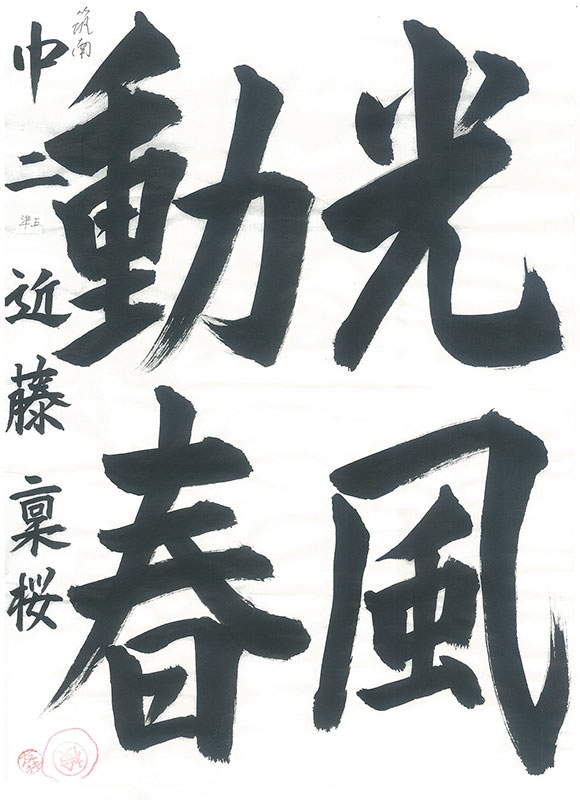 光風
動春
筑南
中二
準五
近藤稟桜